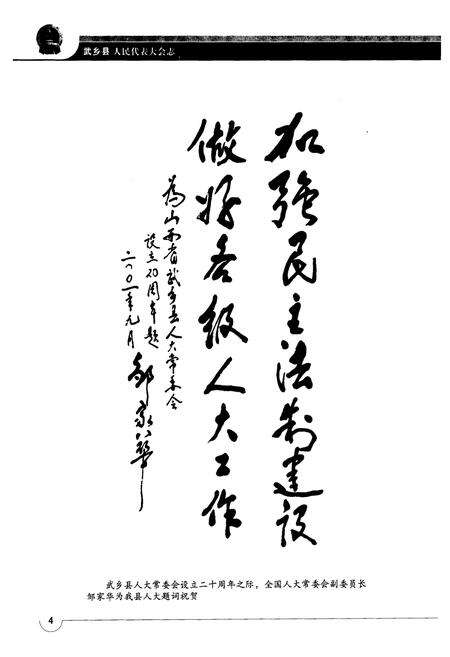 武乡县 人民代表大会志
加强民主法制建设
做好各级人大工作
为山西省武乡县人大常委会
设立20周年题
二〇〇一年九月
邹家华
武乡县人大常委会设立二十周年之际，全国人大常委会副委员长
邹家华为我县人大题词祝贺
4